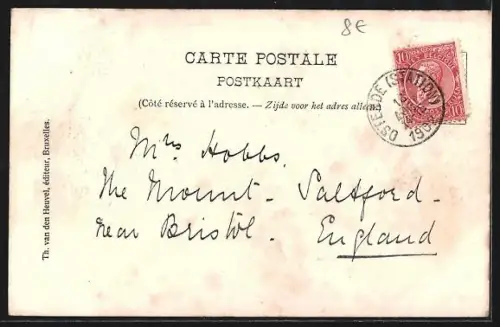 8€
CARTE POSTALE
POSTKAART
(Côté réservé à l'adresse. — Zijde voor het adres alleen
10 10
OSTENDE (STATION)
190
Mrs Hobbs.
The Mount - Saltford -
near Bristol - England
Th. van den Heuvel, éditeur, Bruxelles.